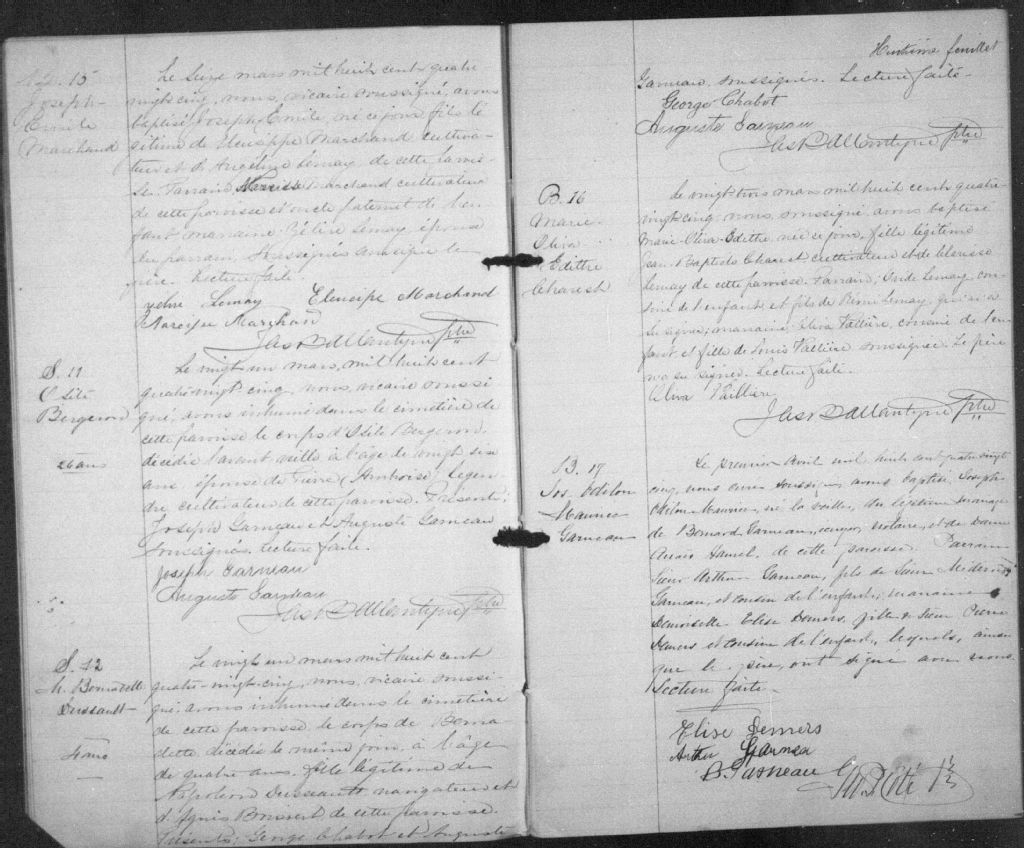 B. 15
Joseph-
Emile
Marchand
Le seize mars mil huit cent quatre
vingt cinq, nous, vicaire soussigné, avons
baptisé Joseph Emile, né ce jour, fils lé
gitime de Eleusippe Marchand cultiva-
teur et d'Angelina Lemay, de cette parois-
se. Parrain Narcisse Marchand cultivateur
de cette paroisse et oncle paternel de l'en
fant, marraine Zélire Lemay, épouse
du parrain, soussignés ainsi que le
père. Lecture faite
zelire Lemay Eleusipe Marchand
Narcisse Marchand
Jas Ballantyne ptre
S. 11
Osite
Bergeron
26 ans
Le vingt un mars, mil huit cent
quatre-vingt cinq, nous, vicaire soussi
gné, avons inhumé dans le cimetière de
cette paroisse le corps d'Osite Bergeron,
décédée l'avant veille à l'âge de vingt six
ans épouse de Pierre (Amboise) Legen-
dre cultivateur de cette paroisse. Présents:
Joseph Garneau et Auguste Garneau
soussignés, lecture faite.
Joseph Garneau
Auguste Garneau
Jas Ballantyne ptre
S. 12
M. Bernadette
Dussault
4 ans
Le vingt un mars mil huit cent
quatre-vingt cinq, nous, vicaire soussi-
gné, avons inhumé dans le cimetière
de cette paroisse le corps de Berna
dette décédée le même jour, à l'âge
de quatre ans, fille légitime de
Napoléon Dussault navigateur et
d'Agnès Boisvert de cette paroisse.
Présents: George Chabot et Auguste
Huitième feuillet
Garneau soussignés. Lecture faite.
George Chabot
Auguste Garneau
Jas Ballantyne ptre
B. 16
Marie
Oliva
Edithe
Charest
Le vingt-trois mars mil huit cent quatre-
vingt cinq, nous, soussigné, avons baptisé
Marie-Oliva-Edithe, née ce jour, fille légitime
Jean-Baptiste Charest cultivateur et de
Lemay de cette paroisse. Parrain, Lemay, cou-
sin de l'enfant et fils de Rémi Lemay, qui n'a
su signer; marraine, Oliva Vallière, cousine de l'en
fant, et fille de Louis Vallière soussignée. Le père
n'a su signer. Lecture faite.
Oliva Vallière
Jas Ballantyne ptre
B. 17
Jos. Odilon
Maurice
Garneau
Le premier Avril mil huit cent quatre vingt
cinq, nous curé soussigné avons baptisé Joseph
Odilon-Maurice, né la veille, du légitime mariage
de Bernard Garneau, écuyer, notaire, et de Dame
Anaïs Hamel, de cette paroisse. Parrain
Sieur Arthur Garneau, fils de Sieur Médéric
Garneau, et cousin de l'enfant, marraine
Demoiselle Elise Demers, fille de Sieur Pierre
Demers et cousine de l'enfant, lesquels, ainsi
que le père, ont signé avec nous.
Lecture faite.
Elise Demers
Arthur Garneau
B. Garneau